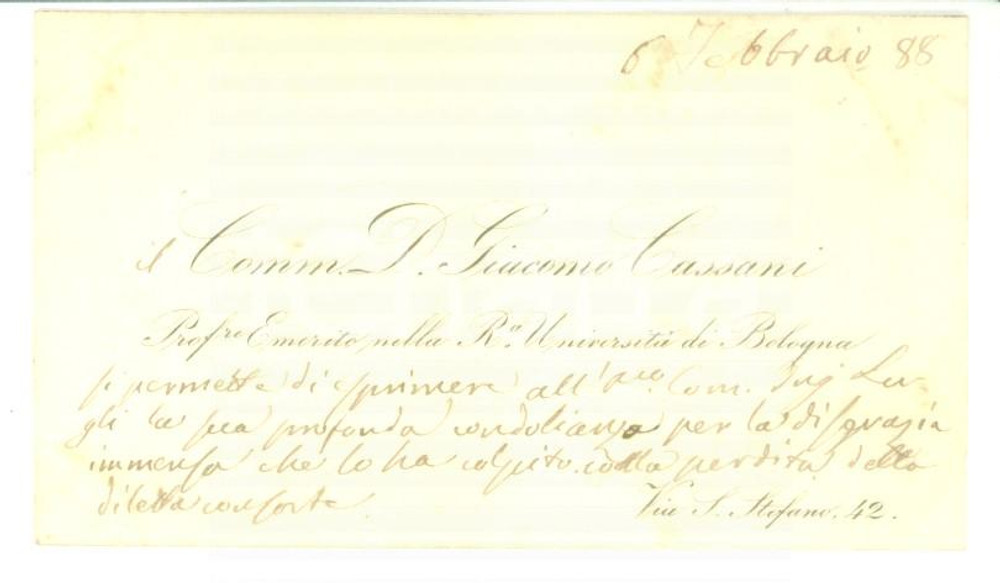 6 Febbraio 88
il Comm. D. Giacomo Cassani
Prof.re Emerito nella R.a Università di Bologna
si permette di esprimere all' Com. Ing Lu-
gli la sua profonda condoglianza per la disgrazia
immensa che lo ha colpito colla perdita della
diletta consorte.
Via S. Stefano. 42.